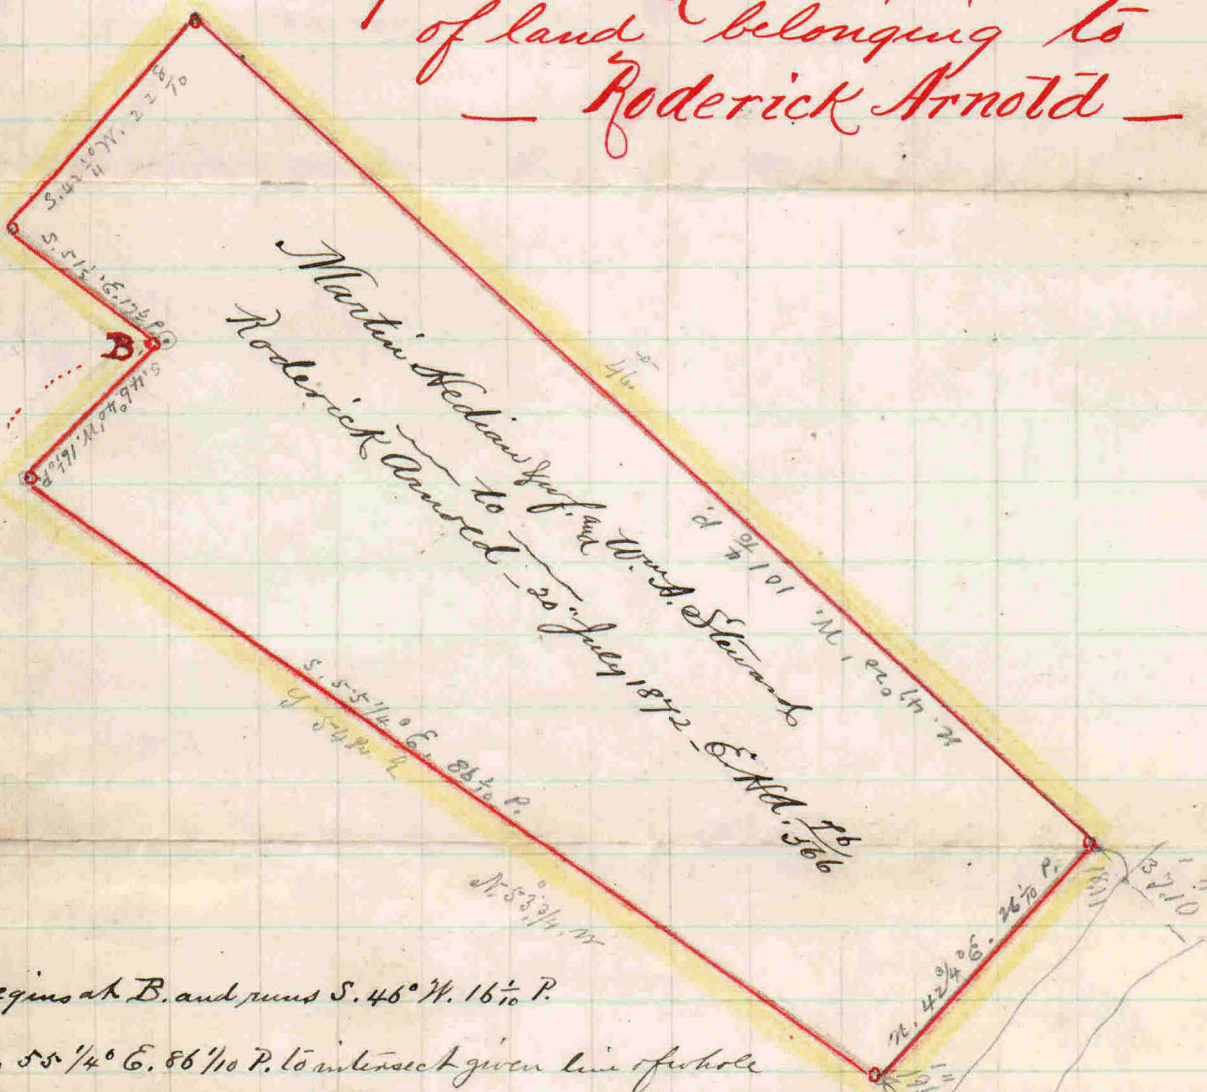 of land belonging to
— Roderick Arnold —
S. 51½° E. 17½ P.
B
S. 46° 40' W. 16 1/10 P
Martin Hedian & wf. and Wm. A. Steward
to
Roderick Arnold – 20" July 1872 –
46°
101 4/10 P.
S. 55 1/4° E. 86 1/10 P.
N. 53 3/4 W
N. 42 3/4° E. 26 1/10 P.
1871
egins at B. and runs S. 46° W. 16 1/10 P.
55 1/4° E. 86 1/10 P. to intersect given line of whole